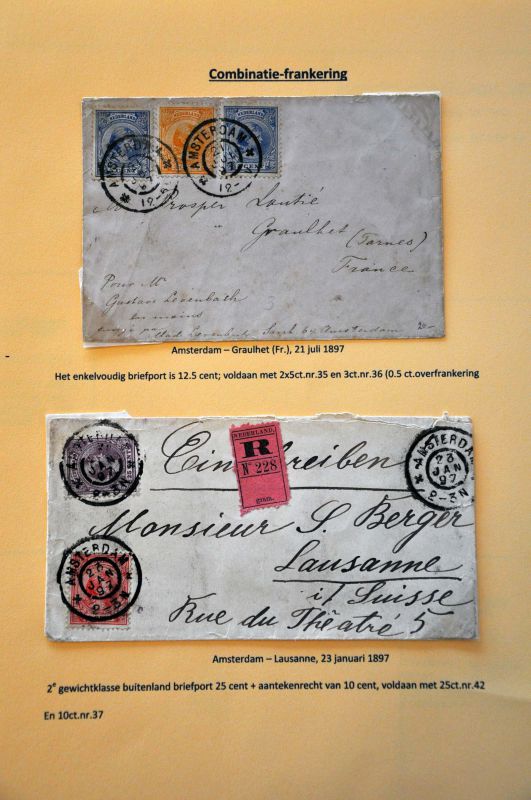 Combinatie-frankering
NEDERLAND NEDERLAND NEDERLAND
AMSTERDAM AMSTERDAM
12-
Mr Prosper Lautié
Graulhet
(Tarnes)
France
Pour Mr
Gustave Levenbach
en mains
3
Amsterdam
Amsterdam – Graulhet (Fr.), 21 juli 1897
Het enkelvoudig briefport is 12.5 cent; voldaan met 2x5ct.nr.35 en 3ct.nr.36 (0.5 ct.overfrankering
AMSTERDAM
Einschreiben
NEDERLAND.
R
No 228
AMSTERDAM
23
JAN
97
2-3N
Monsieur S. Berger
Lausanne
AMSTERDAM
23
JAN
97
2-3N
i/ Suisse
Rue du Théatré 5
Amsterdam – Lausanne, 23 januari 1897
2e gewichtklasse buitenland briefport 25 cent + aantekenrecht van 10 cent, voldaan met 25ct.nr.42
En 10ct.nr.37